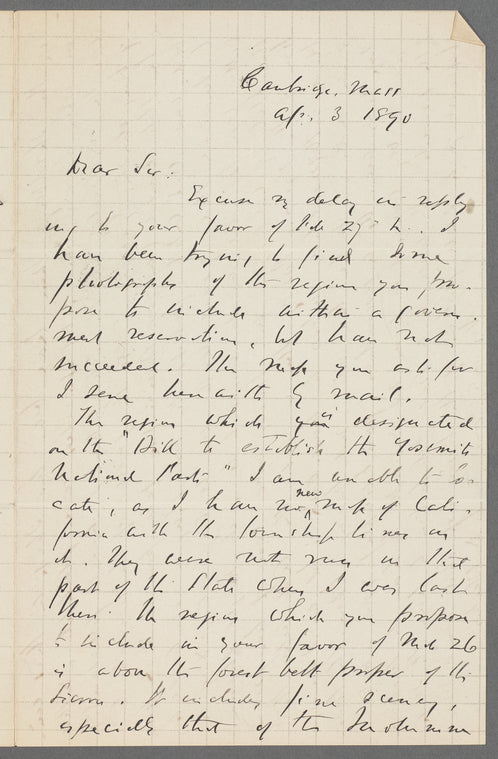 Cambridge, Mass
Ap. 3 1890
Dear Sir:
Excuse my delay in reply
ing to your favor of Feb 27th. I
have been trying to find some
photographs of the region you pro-
pose to include within a govern-
ment reservation, but have not
succeeded. The map you ask for
I send herewith by mail.
The region which is designated
on the "Bill to establish the Yosemite
National Park" I am unable to lo-
cate, as I have no new map of Cali-
fornia with the township lines on
it. They were not run in that
part of the State when I was last
there. The region which you propose
to include in your favor of Mch 26
is above the forest belt proper of the
Sierra. It includes fine scenery,
especially that of the Tuolumne